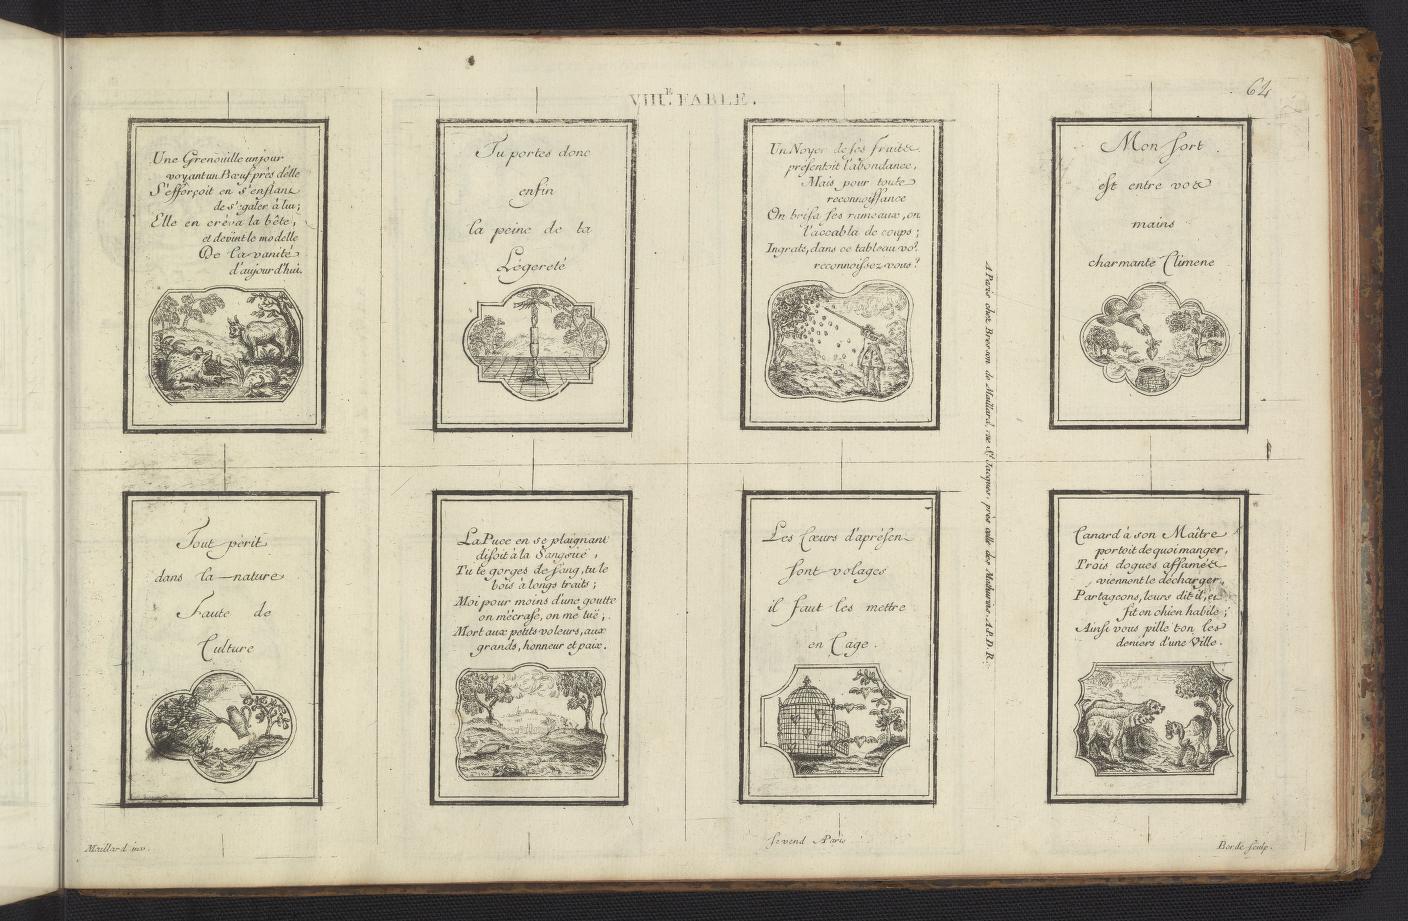 64
VIII.E FABLE.
Une Grenoüille un jour
voyant un Bœuf près d'elle
S'efforçoit en s'enflant
de s'egaler à lui;
Elle en créva la bête,
et devint le modelle
De la vanité
d'aujourd'hui.
Tu portes donc
enfin
la peine de ta
Légereté
Un Noyer de ses fruits
présentoit l'abondance,
Mais pour toute
reconnoissance
On brisa ses rameaux, on
l'accabla de coups;
Ingrats, dans ce tableau vo.s
reconnoissez-vous?
Mon sort
est entre vos
mains
charmante Climene
Tout périt
dans la nature
Faute de
Culture
La Puce en se plaignant
disoit à la Sangsuë,
Tu te gorges de sang, tu le
bois à longs traits;
Moi pour moins d'une goutte
on m'écrase, on me tuë;
Mort aux petits voleurs, aux
grands, honneur et paix.
Les Cœurs d'aprésen
sont volages
il faut les mettre
en Cage.
Canard à son Maître
portoit de quoi manger,
Trois dogues affamés
viennent le décharger,
Partageons, leurs dit-il, et
fit en chien habile;
Ainsi vous pille t-on les
deniers d'une Ville.
A Paris chez Bresson de Maillard, rue S.t Jacques, près celle des Mathurins. A.P.D.R.
Maillard inv.
se vend A Paris
Borde sculp.